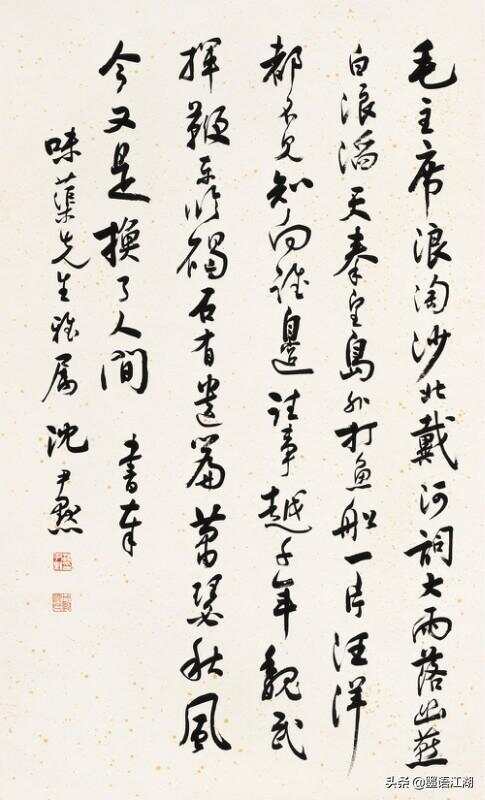 毛主席浪淘沙北戴河詞大雨落幽燕
白浪滔天秦皇島外打魚船一片汪洋
都不見知向誰邊往事越千年魏武
揮鞭東臨碣石有遺篇蕭瑟秋風
今又是換了人間 書奉
味蕖先生雅属 沈尹默
头条 @墨语江湖